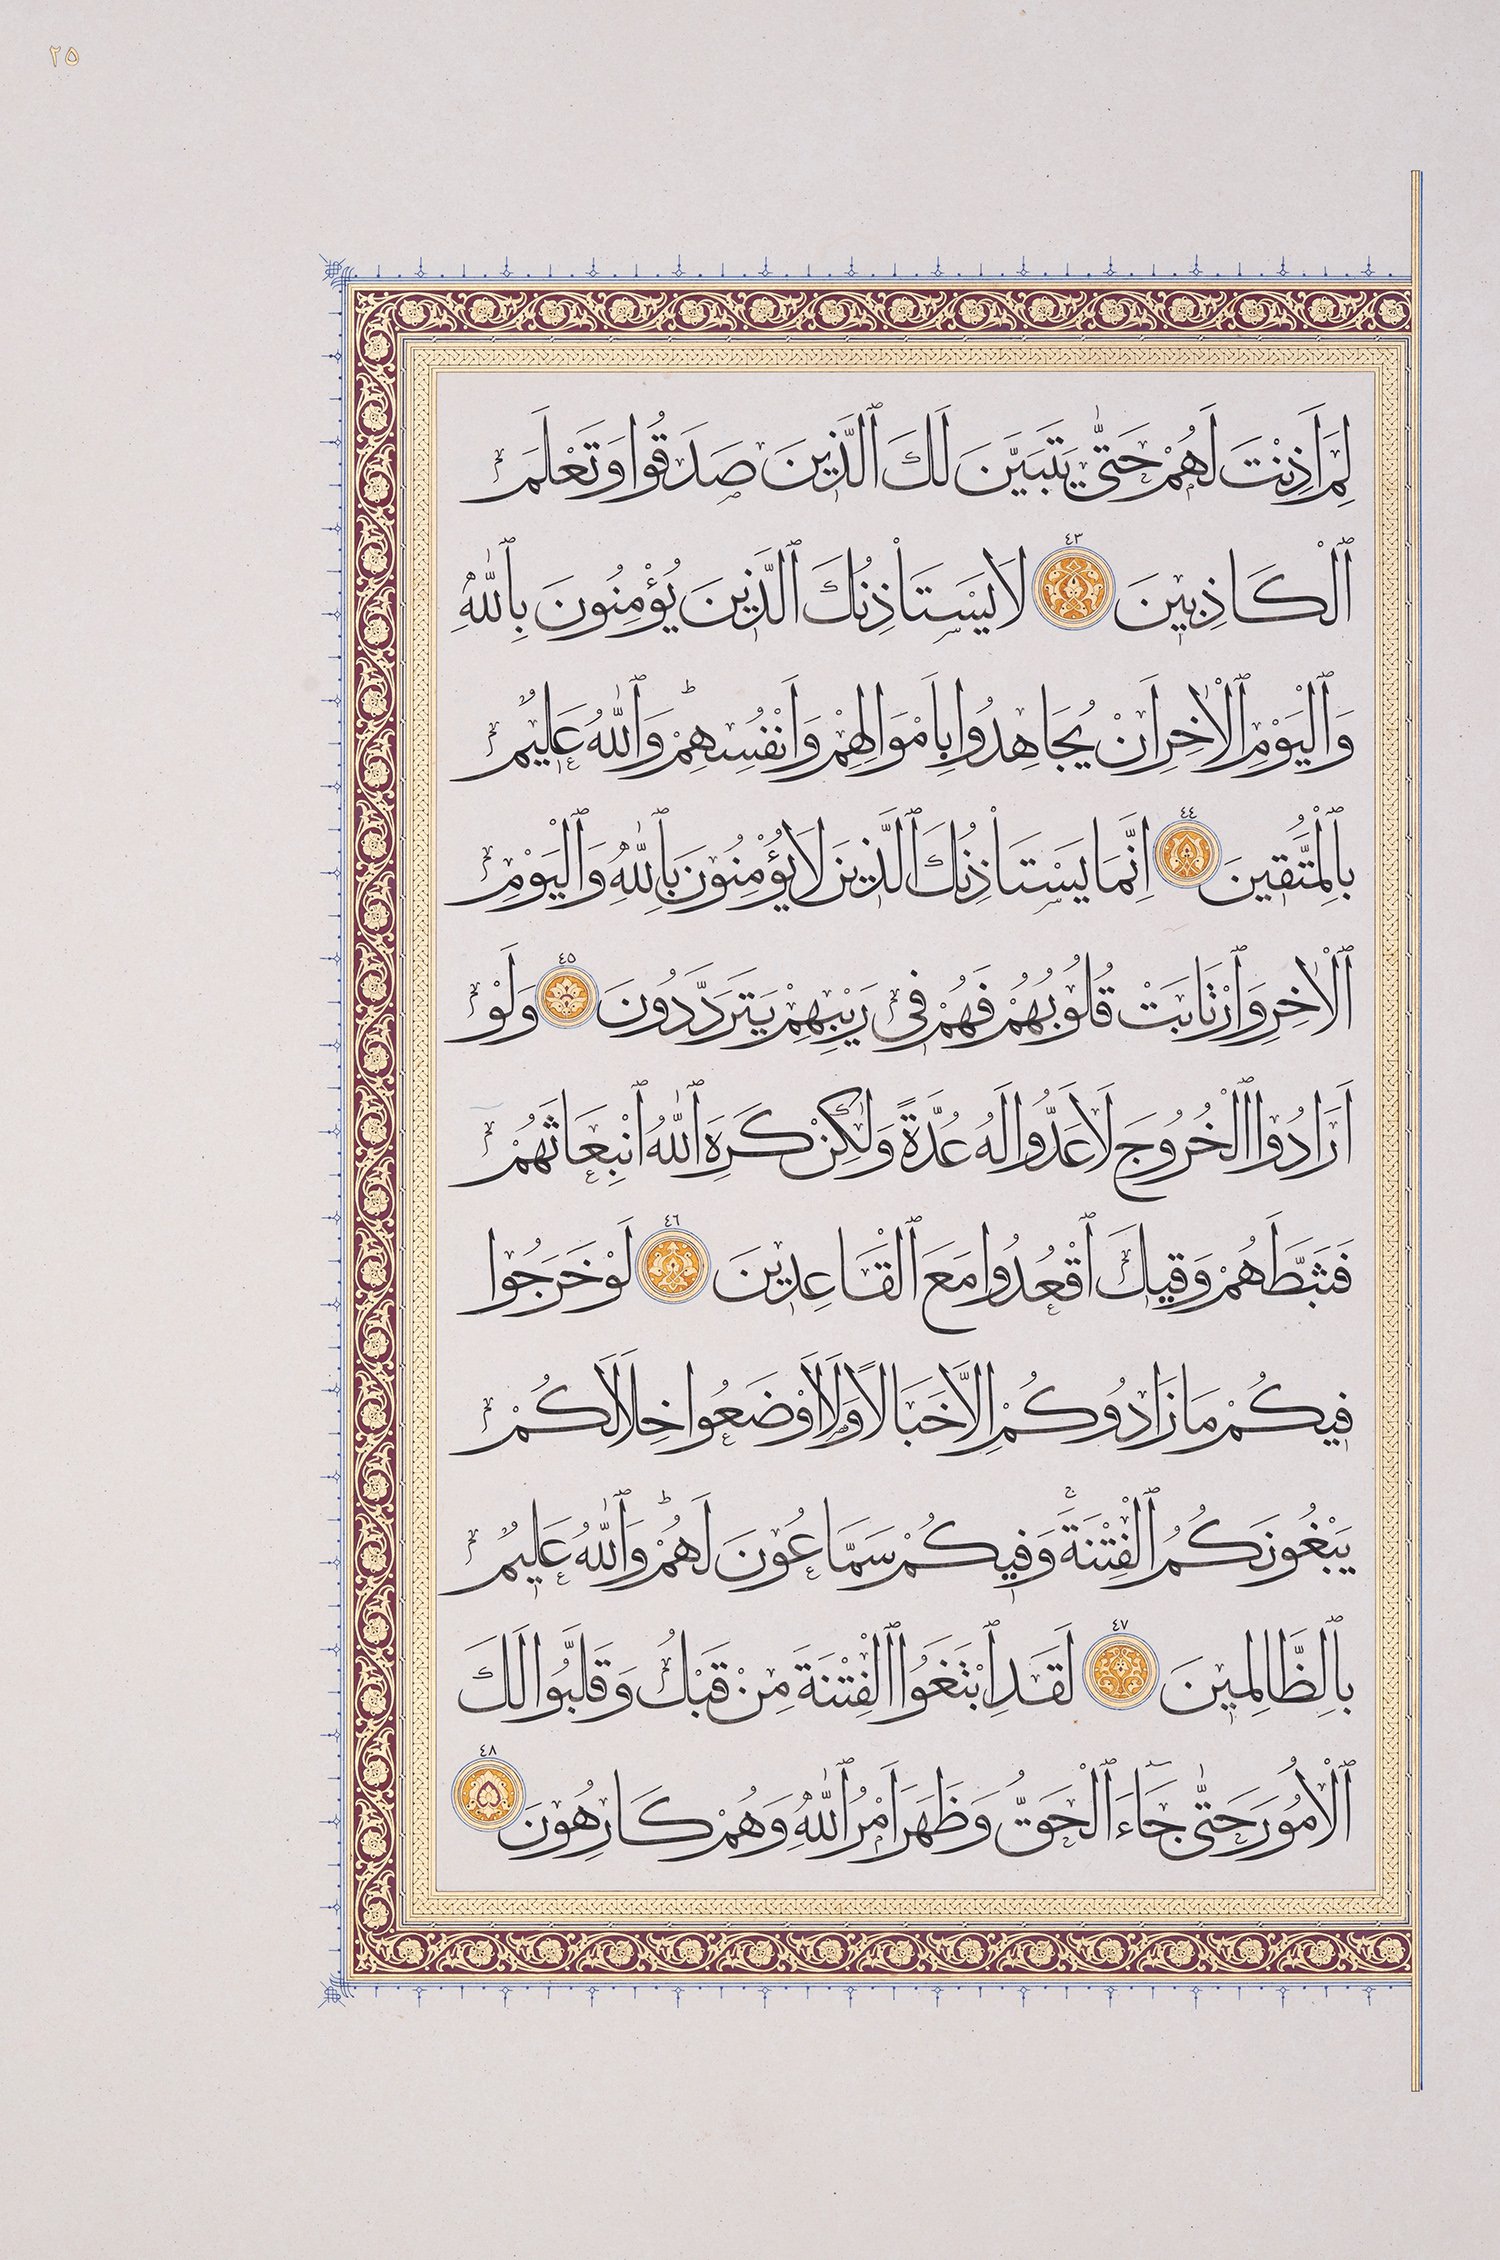 ٢٥
لِمَ اَذِنْتَ لَهُمْ حَتّٰى يَتَبَيَّنَ لَكَ ٱلَّذِينَ صَدَقُوا وَتَعْلَمَ
ٱلْكَاذِبِينَ ٤٣ لَا يَسْتَأْذِنُكَ ٱلَّذِينَ يُؤْمِنُونَ بِٱللّٰهِ
وَٱلْيَوْمِ ٱلْاٰخِرِ اَنْ يُجَاهِدُوا بِاَمْوَالِهِمْ وَاَنْفُسِهِمْ ۜ وَٱللّٰهُ عَلِيمٌ
بِٱلْمُتَّقِينَ ٤٤ اِنَّمَا يَسْتَأْذِنُكَ ٱلَّذِينَ لَا يُؤْمِنُونَ بِٱللّٰهِ وَٱلْيَوْمِ
ٱلْاٰخِرِ وَٱرْتَابَتْ قُلُوبُهُمْ فَهُمْ فِى رَيْبِهِمْ يَتَرَدَّدُونَ ٤٥ وَلَوْ
اَرَادُوا ٱلْخُرُوجَ لَاَعَدُّوا لَهُ عُدَّةً وَلٰكِنْ كَرِهَ ٱللّٰهُ ٱنْبِعَاثَهُمْ
فَثَبَّطَهُمْ وَقِيلَ ٱقْعُدُوا مَعَ ٱلْقَاعِدِينَ ٤٦ لَوْ خَرَجُوا
فِيكُمْ مَا زَادُوكُمْ اِلَّا خَبَالًا وَلَاَاَوْضَعُوا خِلَالَكُمْ
يَبْغُونَكُمُ ٱلْفِتْنَةَ ۚ وَفِيكُمْ سَمَّاعُونَ لَهُمْ ۜ وَٱللّٰهُ عَلِيمٌ
بِٱلظَّالِمِينَ ٤٧ لَقَدِ ٱبْتَغَوُا ٱلْفِتْنَةَ مِنْ قَبْلُ وَقَلَّبُوا لَكَ
ٱلْاُمُورَ حَتّٰى جَٓاءَ ٱلْحَقُّ وَظَهَرَ اَمْرُ ٱللّٰهِ وَهُمْ كَارِهُونَ ٤٨